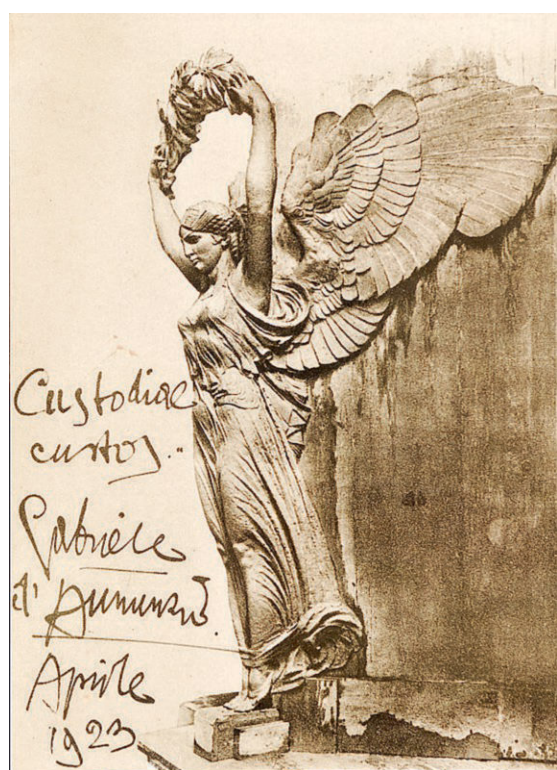 Custodiae
custos..
Gabriele
d'Annunzio
Aprile
1923